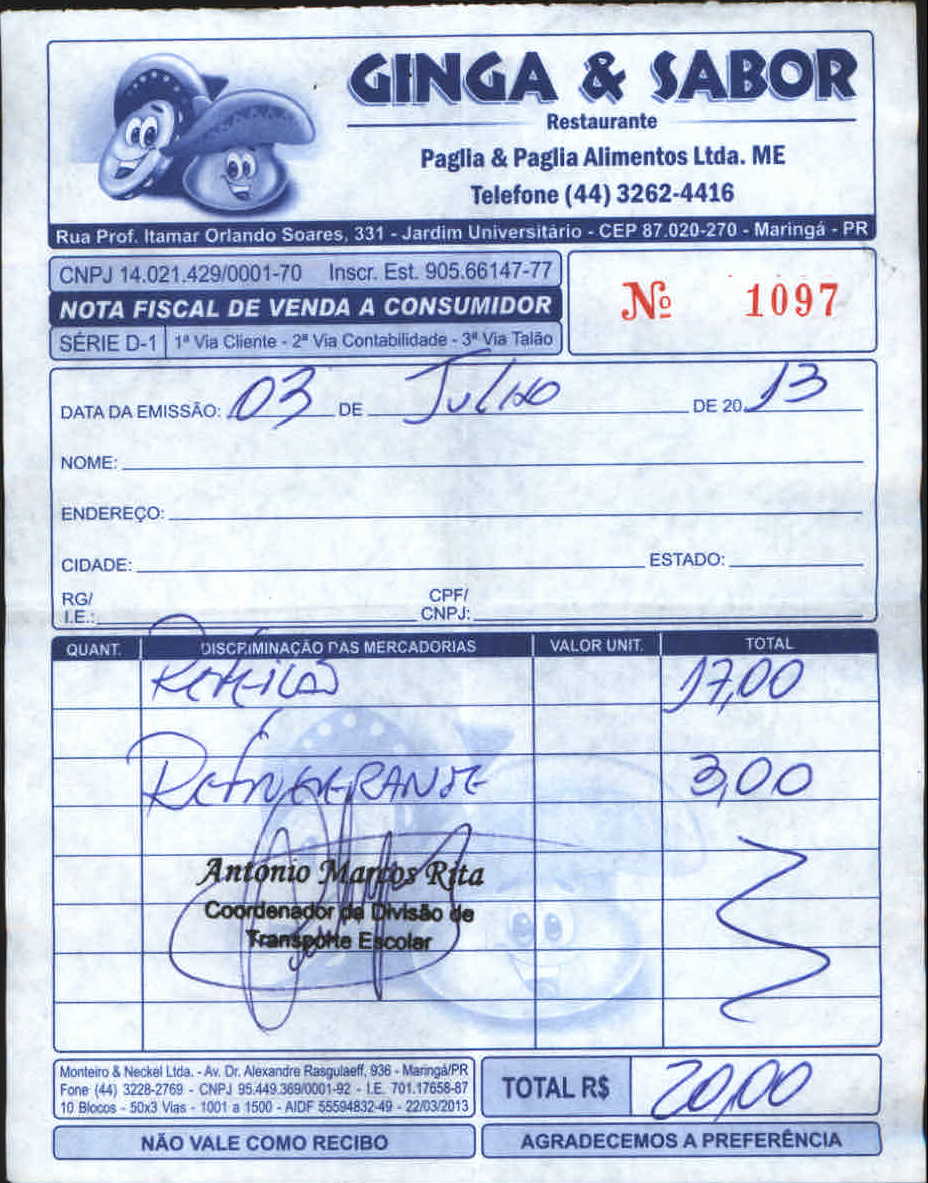 GINGA & SABOR
Restaurante
Paglia & Paglia Alimentos Ltda. ME
Telefone (44) 3262-4416
Rua Prof. Itamar Orlando Soares, 331 - Jardim Universitário - CEP 87.020-270 - Maringá - PR
CNPJ 14.021.429/0001-70 Inscr. Est. 905.66147-77
NOTA FISCAL DE VENDA A CONSUMIDOR
Nº 1097
SÉRIE D-1 1ª Via Cliente - 2ª Via Contabilidade - 3ª Via Talão
DATA DA EMISSÃO: 03 DE Julho DE 2013
NOME:
ENDEREÇO:
CIDADE: ESTADO:
RG/ I.E.: CPF/ CNPJ:
QUANT. DISCRIMINAÇÃO DAS MERCADORIAS VALOR UNIT. TOTAL
17,00
Refrigerante 3,00
Antonio Marcos Rita
Coordenador da Divisão de
Transporte Escolar
Monteiro & Neckel Ltda. - Av. Dr. Alexandre Rasgulaeff, 936 - Maringá/PR
Fone (44) 3228-2769 - CNPJ 95.449.369/0001-92 - I.E. 701.17658-87
10 Blocos - 50x3 Vias - 1001 a 1500 - AIDF 55594832-49 - 22/03/2013
TOTAL R$ 20,00
NÃO VALE COMO RECIBO
AGRADECEMOS A PREFERÊNCIA